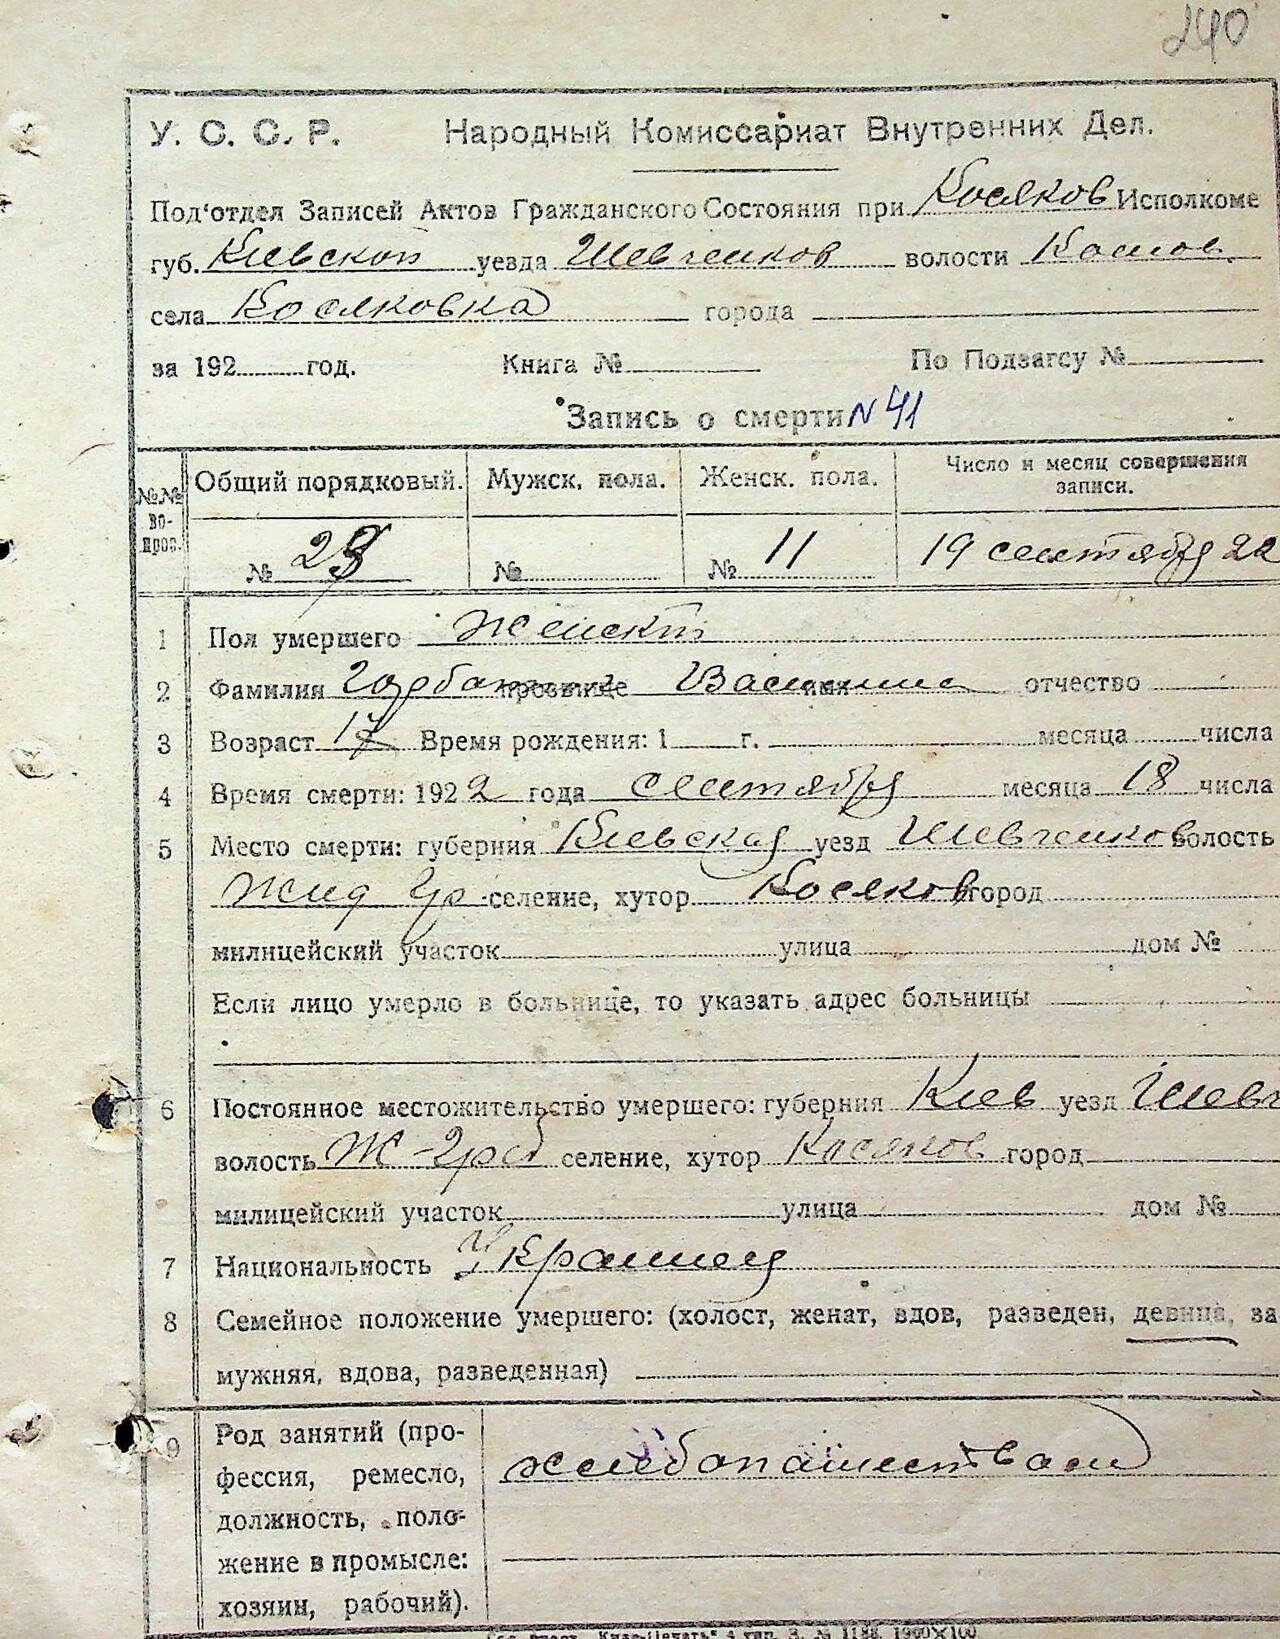 240
У. С. С. Р. Народный Комиссариат Внутренних Дел.
Под'отдел Записей Актов Гражданского Состояния при Косяков Исполкоме
губ. Киевской уезда Шевченков волости
села Косяковка города
за 192 год. Книга № По Подзагсу №
Запись о смерти N 41
№№ вопрос. Общий порядковый. Мужск. пола. Женск. пола. Число и месяц совершения записи.
№ 23 № № 11 19 сентября 22
1 Пол умершего Женский
2 Фамилия прозвище имя отчество
3 Возраст Время рождения: 1 г. месяца числа
4 Время смерти: 1922 года сентября месяца 18 числа
5 Место смерти: губерния Киевская уезд Шевченков волость
Жид Гр селение, хутор Косяков город
милицейский участок улица дом №
Если лицо умерло в больнице, то указать адрес больницы
6 Постоянное местожительство умершего: губерния Киев уезд Шевч
волость Ж-Греб селение, хутор Косяков город
милицейский участок улица дом №
7 Национальность
8 Семейное положение умершего: (холост, женат, вдов, разведен, девица, за
мужняя, вдова, разведенная)
9 Род занятий (про-
фессия, ремесло, хлебопашество
должность, поло-
жение в промысле:
хозяин, рабочий).